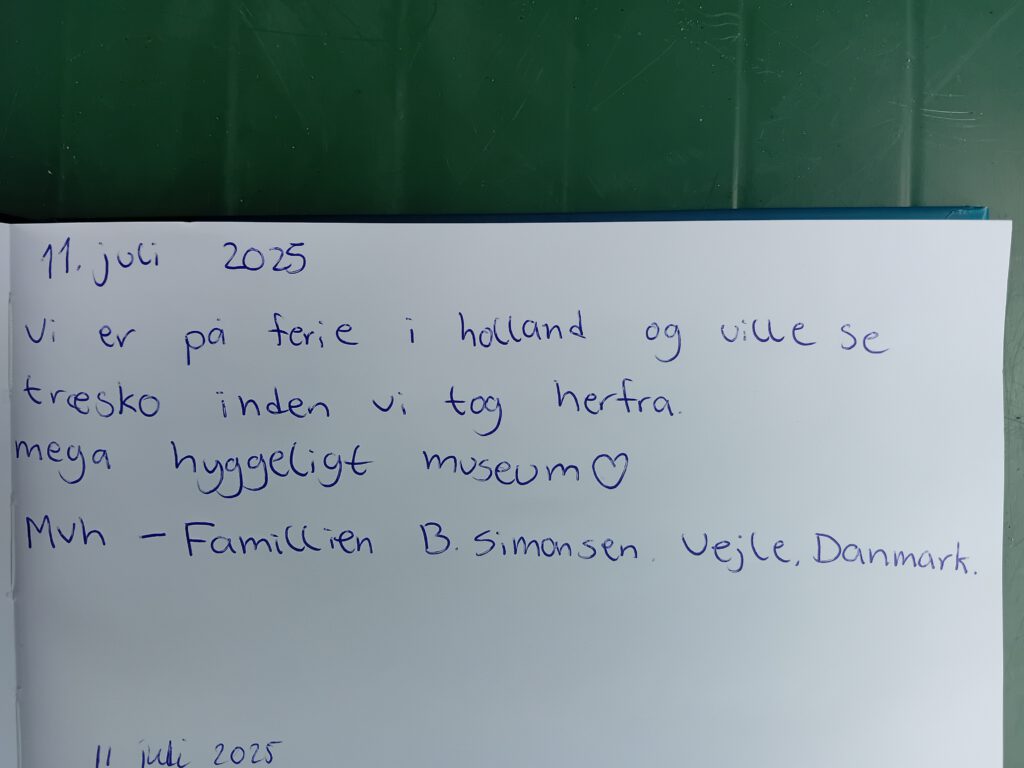 11. juli 2025
Vi er på ferie i holland og ville se
træsko inden vi tog herfra.
mega hyggeligt museum♡
Mvh - Famillien B. Simonsen. Vejle, Danmark.
11 juli 2025